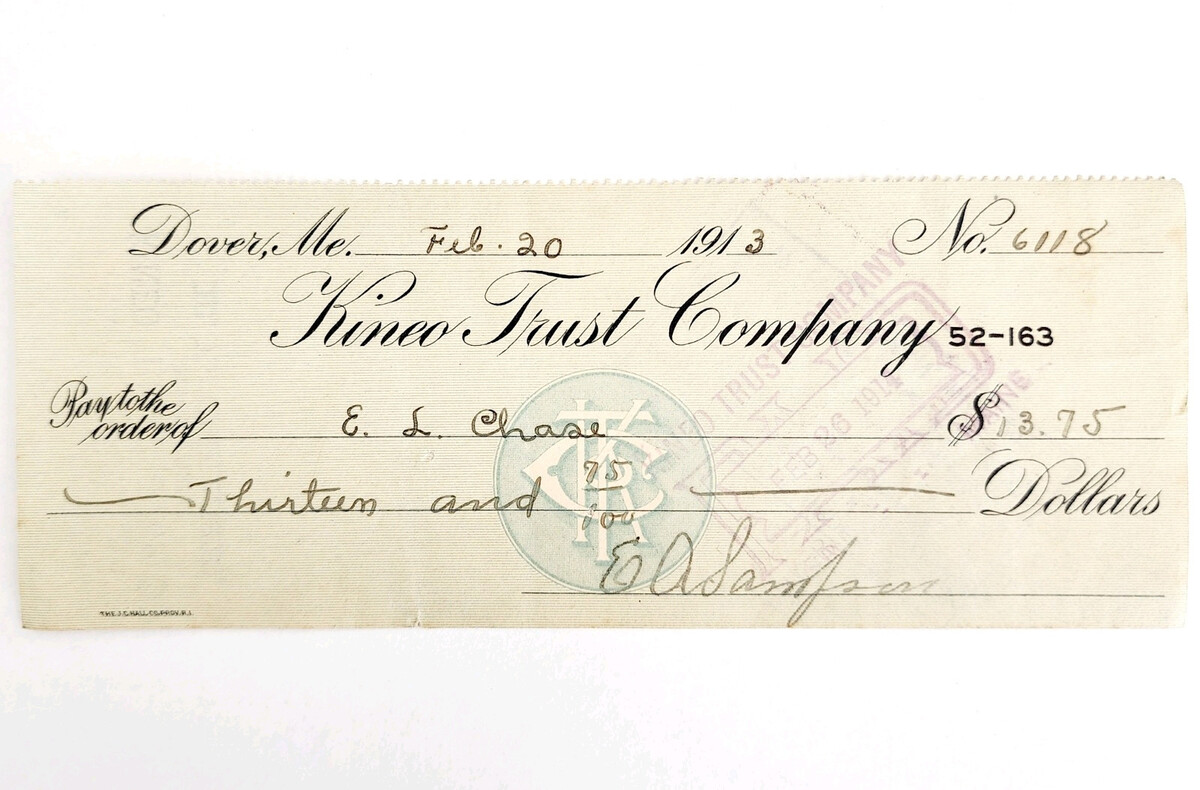 Dover, Me. Feb. 20 1913 No. 6118
Kineo Trust Company 52-163
Pay to the order of E. L. Chase $13.75
Thirteen and 75/100 Dollars
E A Sampson
KINEO TRUST COMPANY
FEB 26 1914
THE J.C. HALL CO. PROV. R.I.